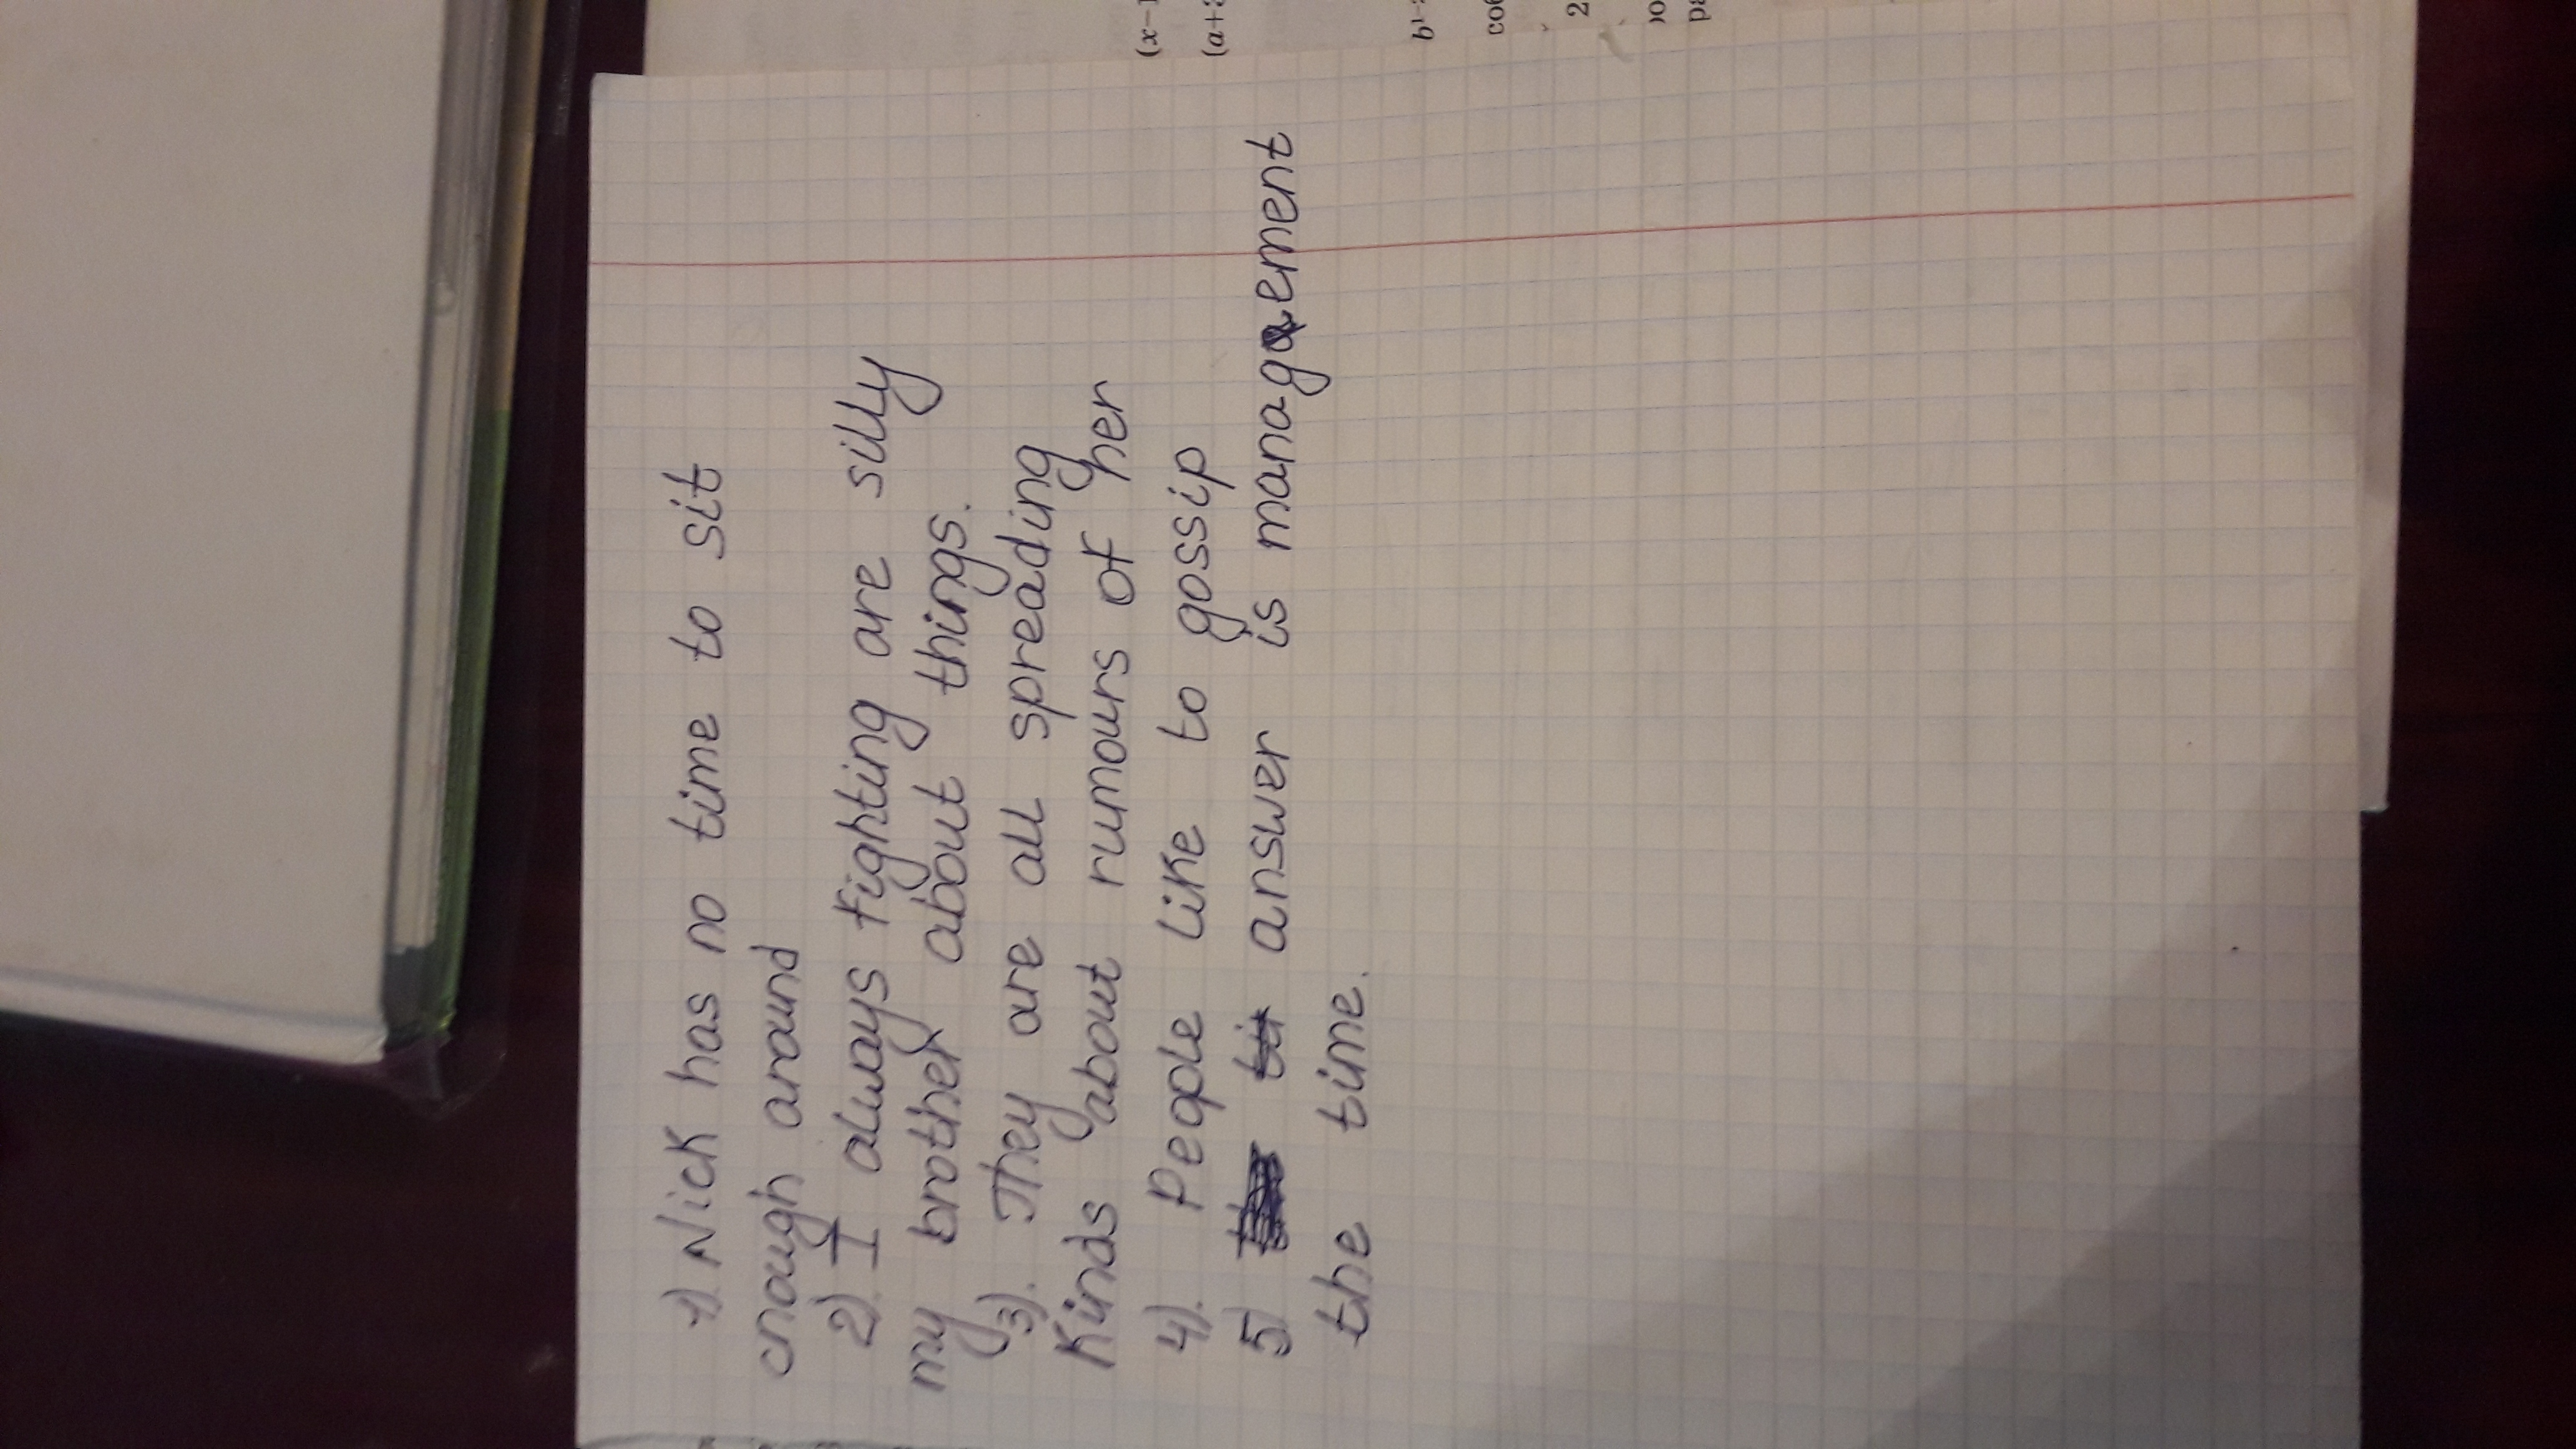 1). Nick has no time to sit
enough around
2) I always fighting are silly
my brother about things.
3). They are all spreading
kinds about rumours of her
4). People like to gossip
5) answer is management
the time.
(x-1
(a+
2